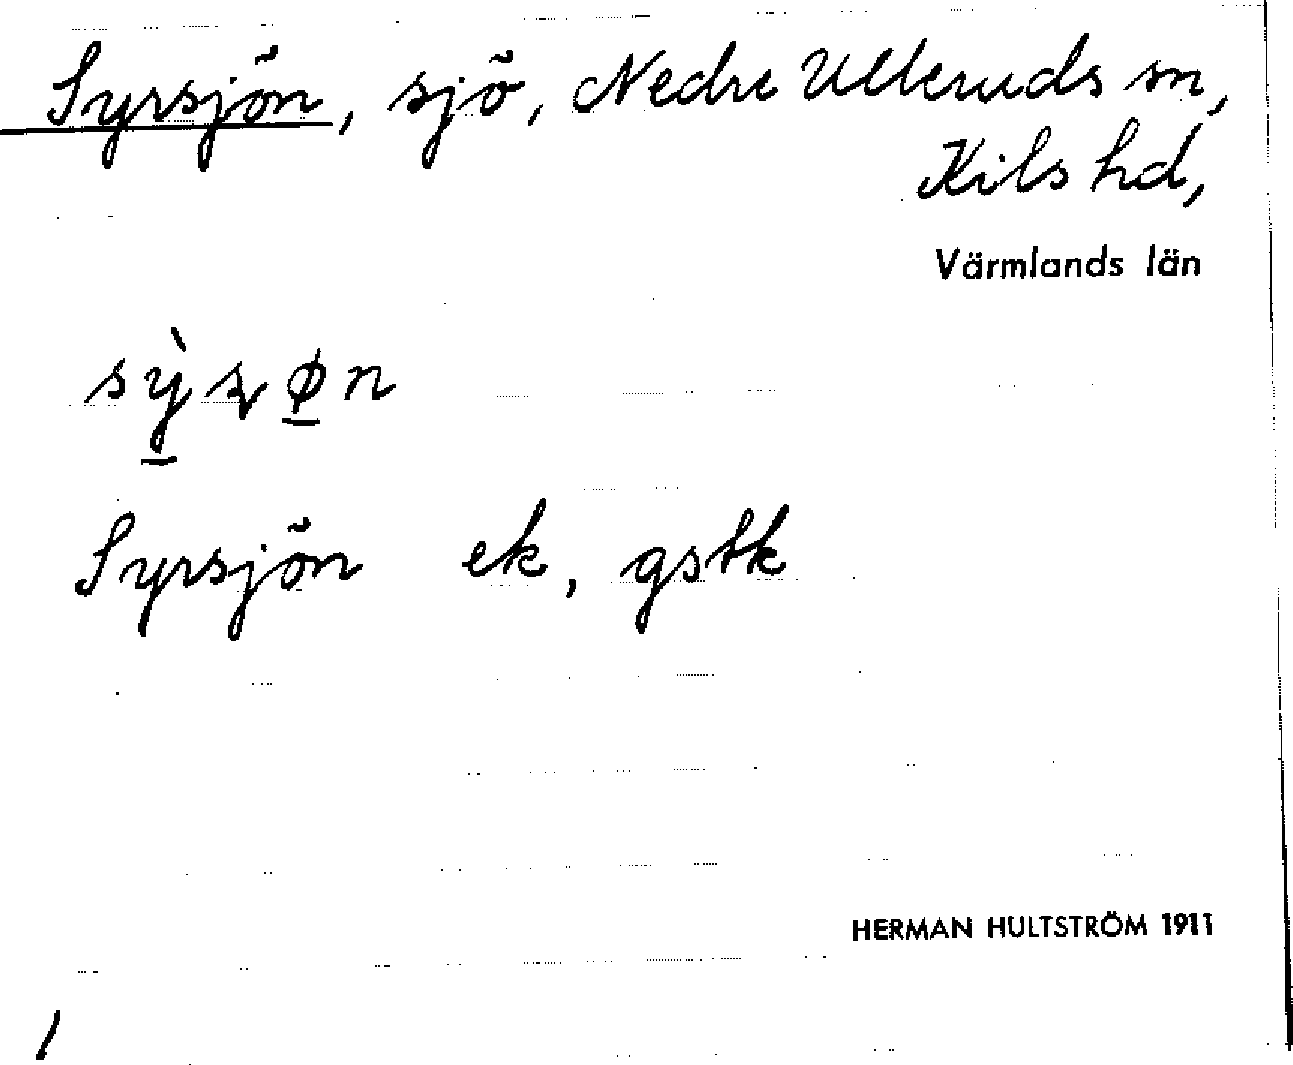 Syrsjön, sjö, Nedre Ulleruds sn,
Kils hd,
Värmlands län
Syrsjön ek, gstk
HERMAN HULTSTRÖM 1911
1